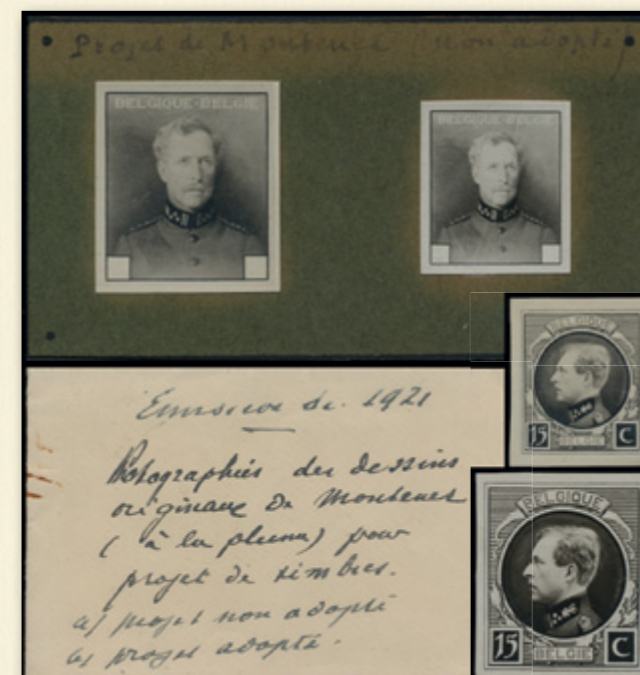 Projet de Montenez (non adopté)
BELGIQUE-BELGIË
BELGIQUE-BELGIË
BELGIQUE
15 C
BELGIE
Emission de 1921
Photographies des dessins
originaux de Montenez
(à la plume) pour
projet de timbres.
a) projet non adopté
b) projet adopté.
BELGIQUE
15 C
BELGIE